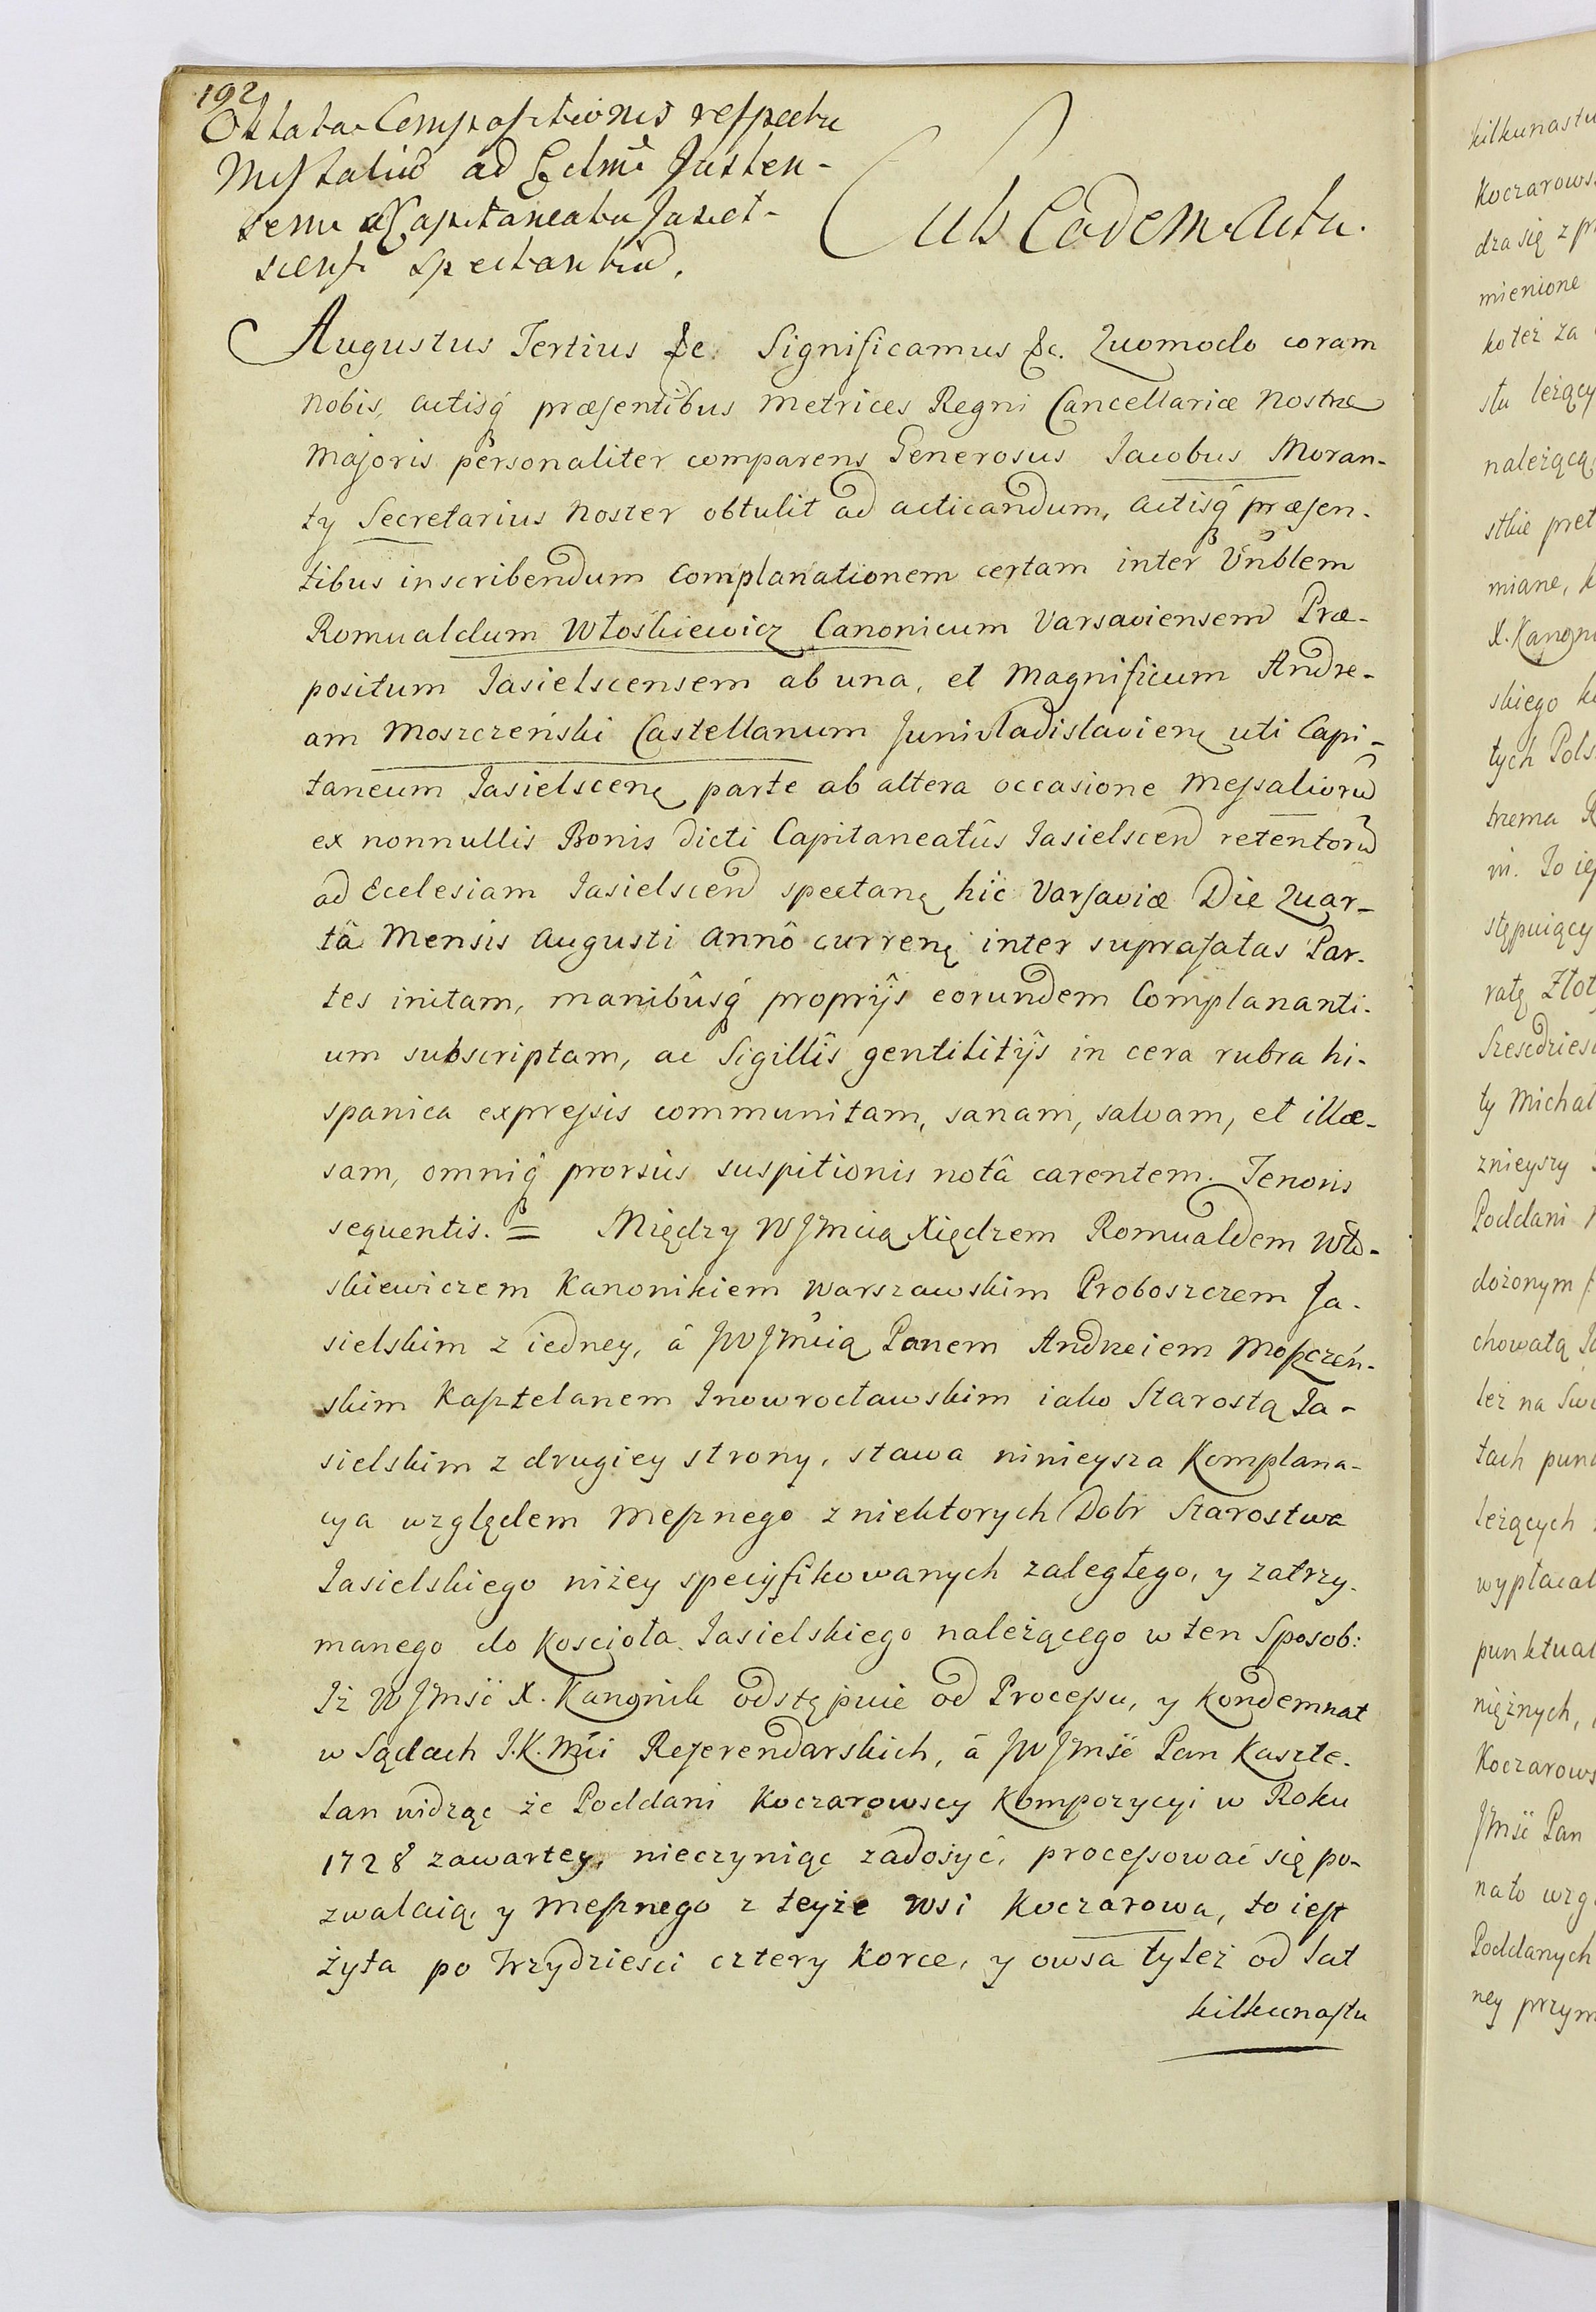 192
Oblata Compositionis respectu
Messaliū ad Ecclm̃
sem a Capitaneatu Jasiel-
scensi spectantiū.
Sub Eodem Actu.
Augustus Tertius &c. Significamus &c. Quomodo coram
nobis, actisq́ præsentibus Metrices Regni Cancellariæ Nostræ
Majoris personaliter comparens Generosus Iacobus Moran-
ty Secretarius Noster obtulit ad acticandum, actisq́ præsen-
tibus inscribendum Complanationem certam inter Vnblem
Romualdum Włoskiewicz Canonicum Varsaviensem Præ-
positum Iasielscensem ab una, et Magnificum Andre-
am Moszczeński Castellanum Junivladislavienę uti Capi-
taneum Iasielscenę parte ab altera occasione Messaliorũ
ex nonnullis Bonis dicti Capitaneatûs Iasielscen̄ retentorũ
ad Ecclesiam Iasielscen̄ spectanę hîc Varsaviæ Die Quar-
tâ Mensis Augusti Annô currenę inter suprafatas Par-
tes initam, manibûsq́ proprijs eorundem Complananti-
um subscriptam, ac Sigillîs gentilitijs in cera rubra hi-
spanica expressis communitam, sanam, salvam, et illæ-
sam, omniq́ prorsùs suspitionis notâ carentem. Tenoris
sequentis. = Między WJmcią Xiędzem Romualdem Wło-
skiewiczem Kanonikiem Warszawskim Proboszczem Ja-
sielskim z iedney, â JWJmcią Panem Andrzeiem Moszczeń-
skim Kasztelanem Inowrocławskim iako Starostą Ia-
sielskim z drugiey strony, stawa ninieysza Komplana-
cya względem Mesznego z niektorych Dobr Starostwa
Iasielskiego niżey specyfikowanych zaległego, y zatrzy-
manego do Kościoła Iasielskiego należącego w ten Sposob:
Iż WJmść X. Kanonik odstępuie od Processu, y Kondemnat
w Sądach I.K.Mći Referendarskich, â JWJmść Pan Kaszte-
lan widząc że Poddani Koczarowscy Kompozycyi w Roku
1728 zawartey, nieczyniąc zadosyć, processować się po-
zwalaią, y Mesznego z teyże wsi Koczarowa, to iest
żyta po trzydziesci cztery Korce, y owsa tyleż od lat
kilkunastu
kilkunastu
Koczarows
dza się z pr
mienione
koteż za
stu leżący
należącą
stkie pret
miane, k
X. Kanoni
skiego k
tych Pols
trzema R
ni. To ie
stępuiący
ratę Złot
Szescdziesi
ty Michał
znieyszy
Poddani
dożonym
chowałą
też na Swi
tach pun
leżących
wypłacal
punktual
niężnych,
Koczarows
Jmść Pan
nato wzg
Poddanych
ney przym